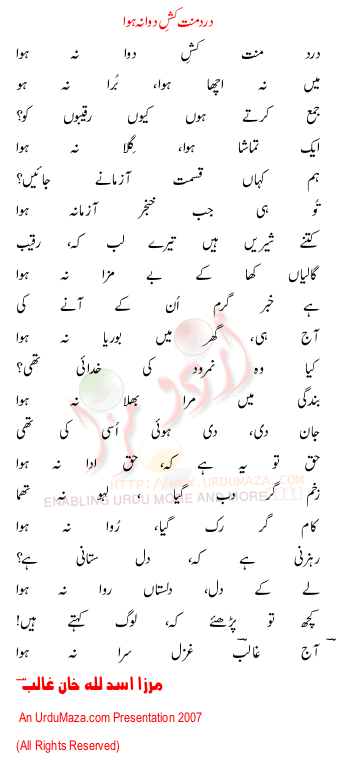 درد منت کشِ دوا نہ ہوا
درد منت کشِ دوا نہ ہوا
میں نہ اچھا ہوا، بُرا نہ ہو
جمع کرتے ہوں کیوں رقیبوں کو؟
ایک تماشا ہوا، گِلا نہ ہوا
ہم کہاں قسمت آزمانے جائیں؟
تُو ہی جب خنجر آزمانہ ہوا
کتنے شیریں ہیں تیرے لب کہ، رقیب
گالیاں کھا کے بے مزا نہ ہوا
ہے خبر گرم اُن کے آنے کی
آج ہی، گھر میں بوریا نہ ہوا
کیا وہ نمرود کی خدائی تھی؟
بندگی میں مرا بھلا نہ ہوا
جان دی، دی ہوئی اُسی کی تھی
حق تو یہ ہے کہ، حق ادا نہ ہوا
زخم گر دب گیا، لہو نہ تھما
کام گر رک گیا، رُوا نہ ہوا
رہزنی ہے کہ، دل ستانی ہے؟
لے کے دل، دلستاں روا نہ ہوا
کچھ تو پڑھئے کہ، لوگ کہتے ہیں!
آج غالبؔ غزل سرا نہ ہوا
مرزا اسد للہ خان غالبؔ
اردو مزا
HTTP://WWW.URDUMAZA.COM
ENABLING URDU MOBILE AND MORE
An UrduMaza.com Presentation 2007
(All Rights Reserved)